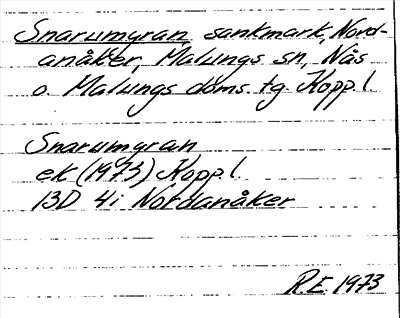 Snarumyran, sankmark, Nord-
anåker, Malungs sn, Nås
o. Malungs doms. tg. Kopp. l.
Snarumyran
ek (1973) Kopp. l.
13D 4i Nordanåker
R.E. 1973